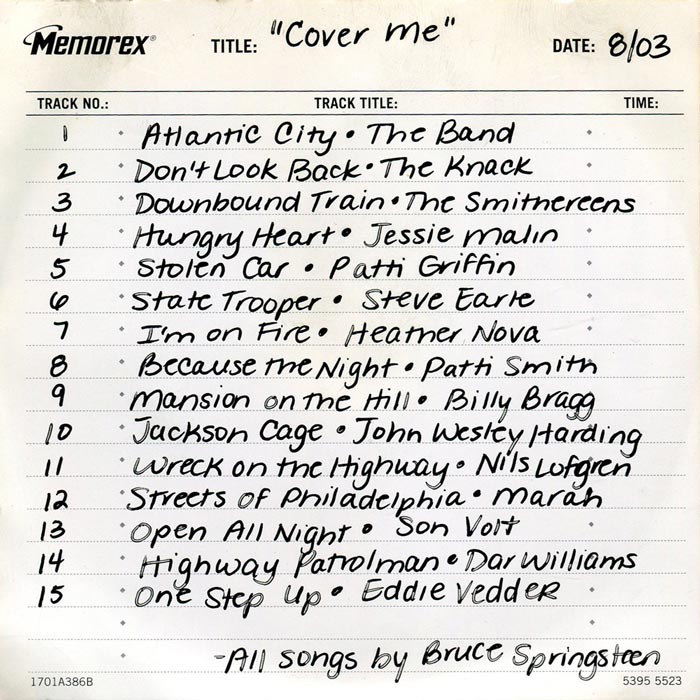 Memorex® TITLE: "Cover me" DATE: 8/03
TRACK NO.: TRACK TITLE: TIME:
1 Atlantic City • The Band
2 Don't Look Back • The Knack
3 Downbound Train • The Smithereens
4 Hungry Heart • Jessie Malin
5 Stolen Car • Patti Griffin
6 State Trooper • Steve Earle
7 I'm on Fire • Heather Nova
8 Because the Night • Patti Smith
9 Mansion on the Hill • Billy Bragg
10 Jackson Cage • John Wesley Harding
11 Wreck on the Highway • Nils Lofgren
12 Streets of Philadelphia • Marah
13 Open All Night • Son Volt
14 Highway Patrolman • Dar Williams
15 One Step Up • Eddie Vedder
-All songs by Bruce Springsteen
1701A386B 5395 5523